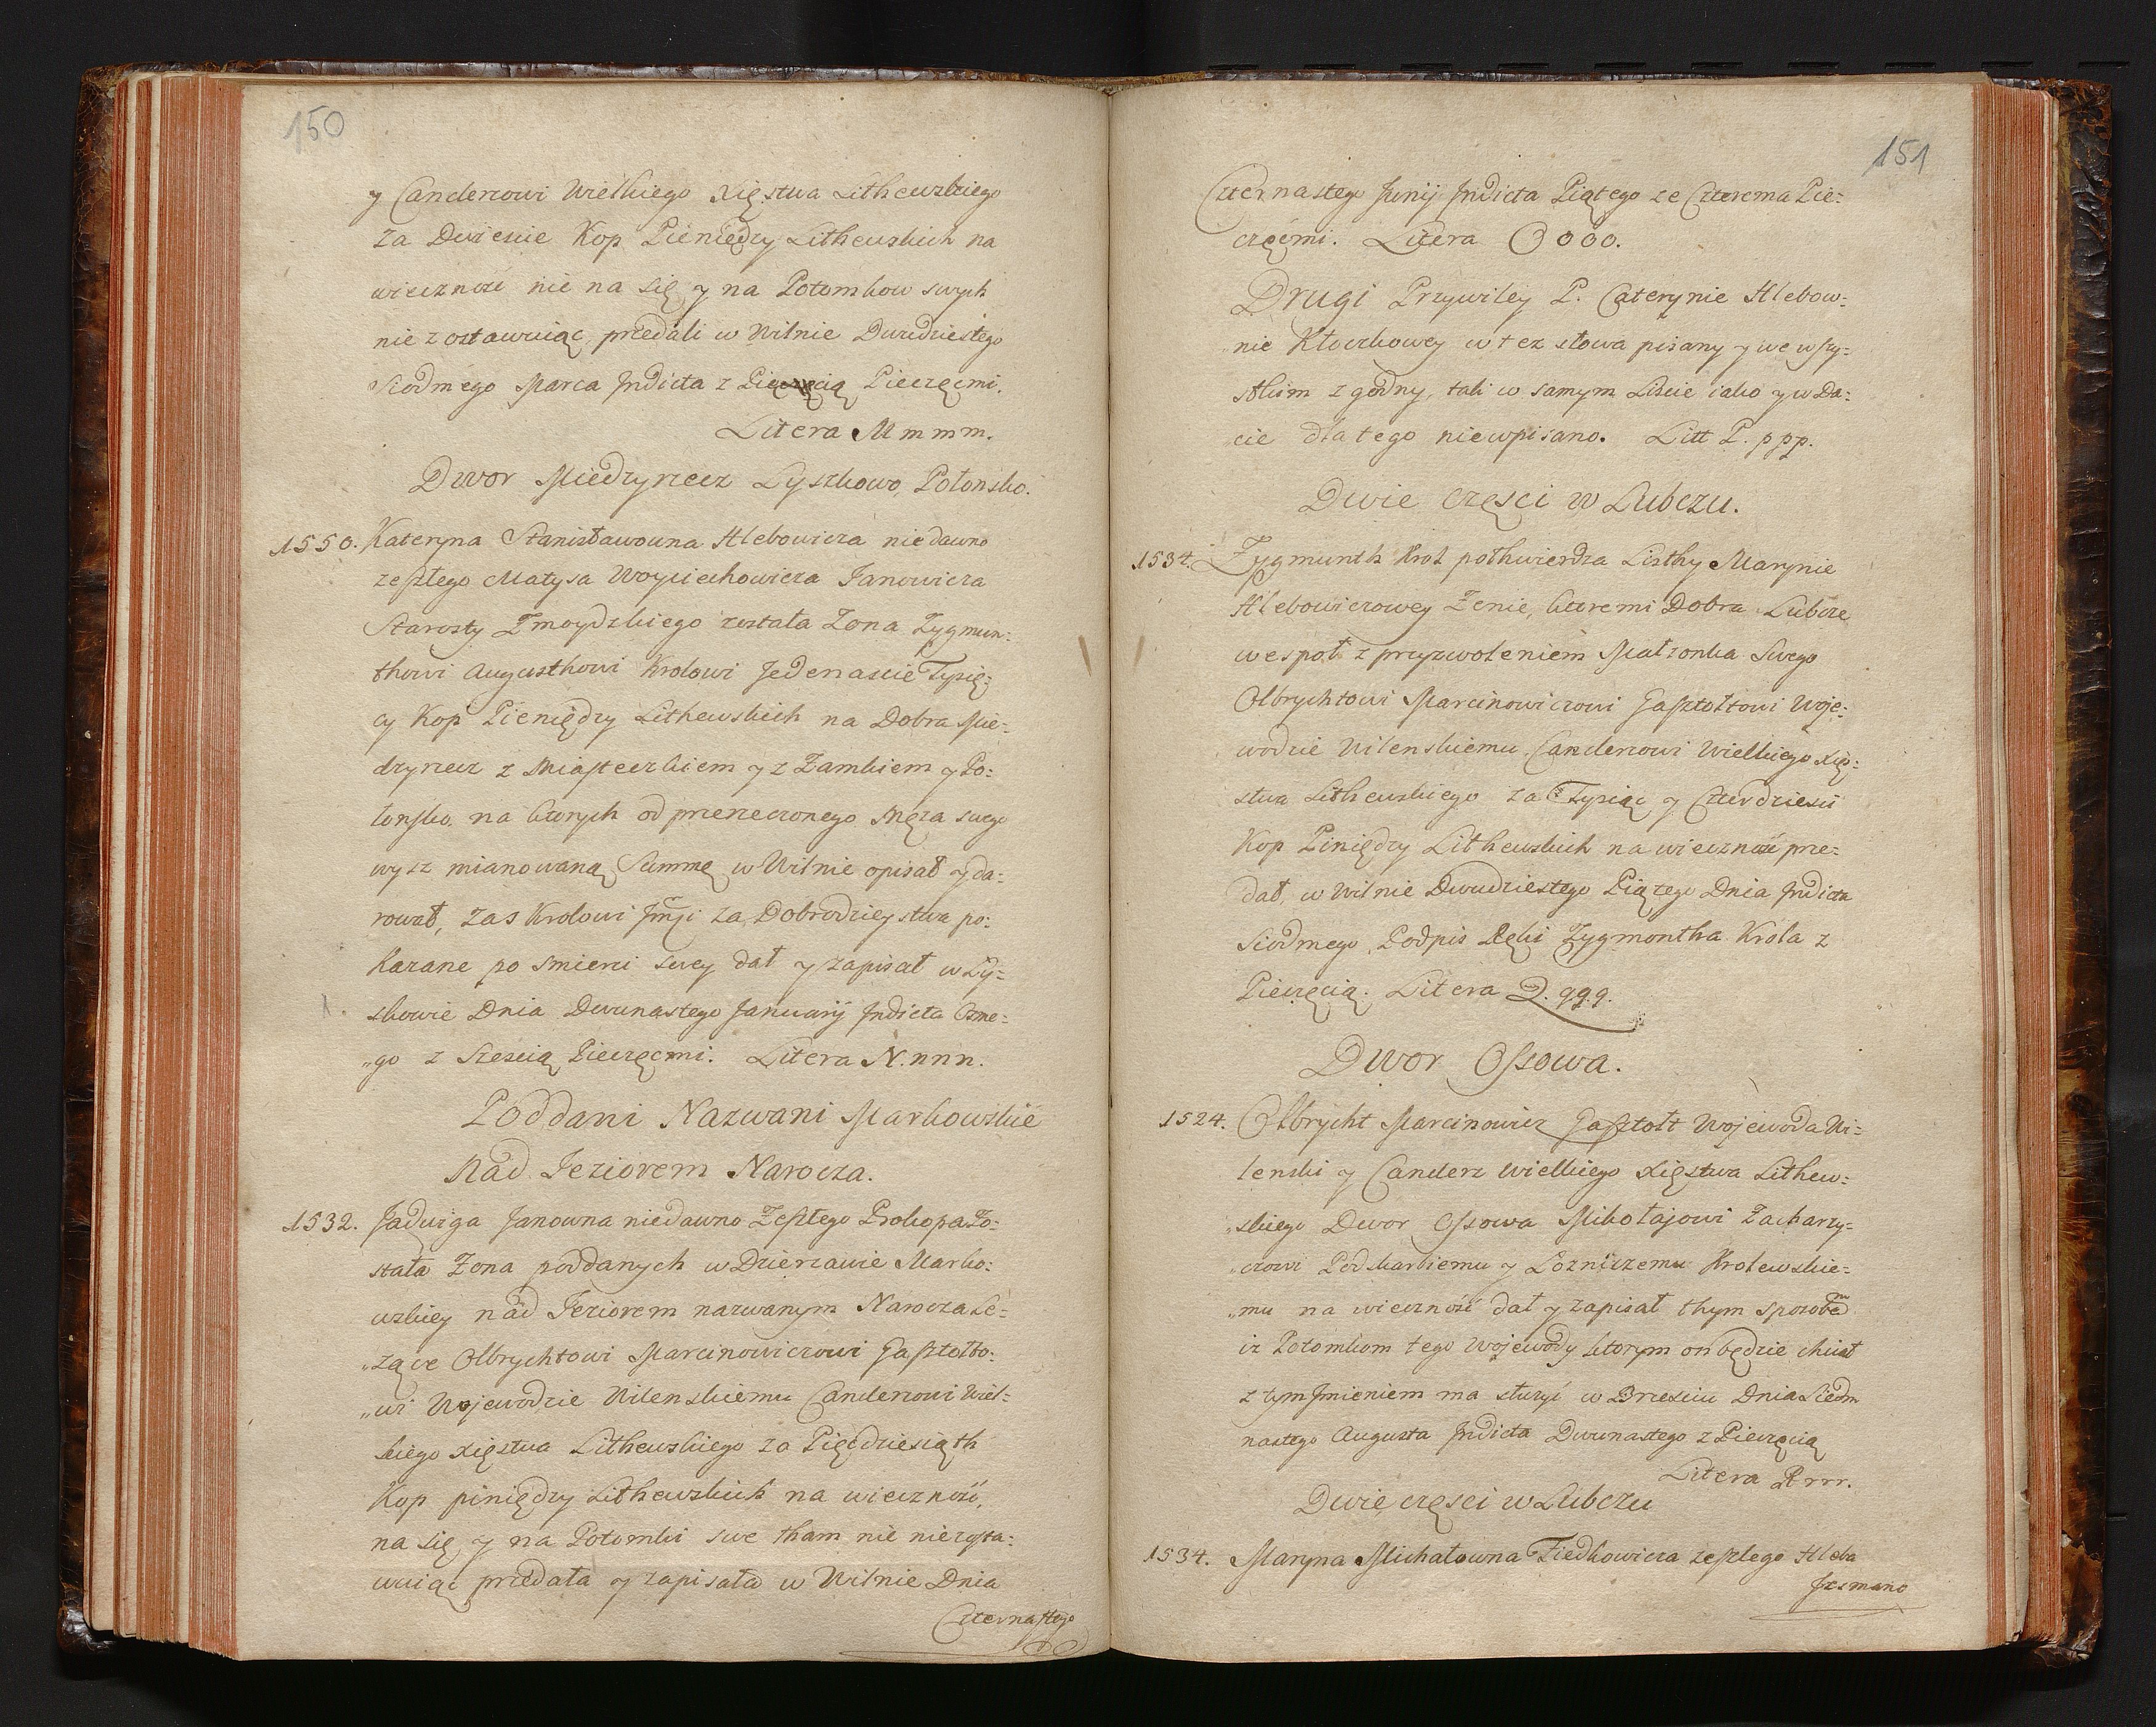 150
y Canclerzowi Wielkiego Xięstwa Lithewskiego
Za Dwiescie Kop Pieniędzy Lithewskich na
wieczność nic na się y na Potomkow swych
nie zostawuiąc przedali w Wilnie Dwudziestego
Siodmego Marca Indicta z Pieczęcią Pieczęcmi.
Litera M m m m.
Dwor Miedzyrzecz Lyszkowo, Polonsko.
1550. Kateryna Stanisławowna Hlebowicza niedawno
zeszłego Matysa Woyciechowicza Janowicza
Starosty Zmoydzkiego została Zona Zygmun:
thowi Augusthowi Krolowi Jedenascie Tysię:
cy Kop Pieniędzy Lithewskich na Dobra Mie:
dzyrzecz z Miasteczkiem y z Zamkiem y Po:
lonsko. na ktorych od przerzeczonego Męza swego
wysz mianowaną Summę w Wilnie opisał y da:
rował, zas Krolowi Jmći za Dobrodzieystwa po:
kazane po smierci swey dał y zapisał w Ly=
skowie Dnia Dwunastego Januarij Indicta Osme=
„go z Szescią Pieczęcmi. Litera N. nnn.
Poddani Nazwani Markowskie
Nad Jeziorem Narocza.
1532. Jadwiga Janowna niedawno Zeszłego Prokopa Zo:
stała Zona poddanych w Dzierzawie Marko:
wskiey nad Jeziorem nazwanym Narocza Le:
„zące Olbrychtowi Marcinowiczowi Gasztołto:
„wi Wojewodzie Wilenskiemu Canclerzowi Wiel:
kiego Xięstwa Lithewskiego za Pięcdziesiąth
Kop piniędzy Lithewskich na wieczność,
na się y na Potomki swe tham nic niezosta:
wuiąc przedała y zapisała w Wilnie Dnia
Czternastego
151
Czternastego Junij Indicta Piątego ze Czterema Pie:
częćmi. Litera O ooo.
Drugi Przywiley P. Caterynie Hlebow:
nie Kłoczkowey w tez słowa pisany y we wszy:
stkim zgodny, tak w samym Liscie iako y w Da:
cie dlatego niewpisano. Litt P. ppp.
Dwie częsci w Lubczu.
1534. Zygmunth Krol pothwierdza Listhy Marynie
Hlebowiczowey Zenie, ktoremi Dobra Lubcze
wespoł z przyzwoleniem Małzonka Swego
Olbrychtowi Marcinowiczowi Gasztołtowi Woje:
wodzie Wilenskiemu Canclerzowi Wielkiego Xię:
stwa Lithewskiego za Tysiąc y Czterdziesci
Kop Piniędzy Lithewskich na wieczność prze:
dał, w Wilnie Dwudziestego Piątego Dnia Indicta
Siodmego, Podpis Ręki Zygmontha Krola z
Pieczęcią. Litera Q. qq.q.
Dwor Ossowa.
1524. Olbrycht Marcinowicz Gasztołt Wojewoda Wi=
lenski y Canclerz Wielkiego Xięstwa Lithew:
„skiego Dwor Ossowa Mikołajowi Zacharzy=
„czowi Podskarbiemu y Łozniczemu Krolewskie=
„mu na wieczność dał y zapisał thym sposobem
iz Potomkom tego Wojewody ktorym on będzie chciał
z tym Jmieniem ma słuzyć w Brzesciu Dnia Siedm
nastego Augusta Indicta Dwunastego z Pieczęcią
Litera R rrr.
Dwie częsci w Lubczu
1534. Maryna Michałowna Fiedkowicza zeszłego Hleba
Jzsmano